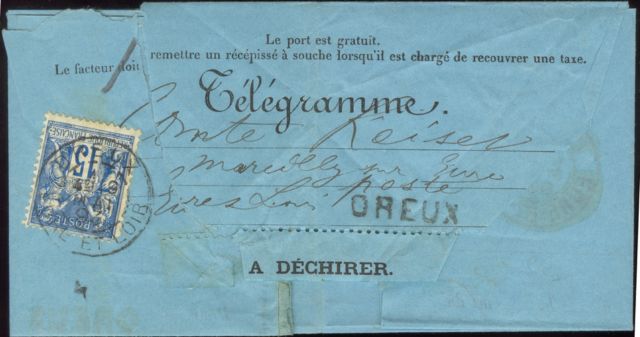 Le port est gratuit.
Le facteur doit remettre un récépissé à souche lorsqu'il est chargé de recouvrer une taxe.
Télégramme.
Comte Keiser
Marcilly sur Eure
poste
DREUX
15
POSTES
ET LOIR
A DÉCHIRER.